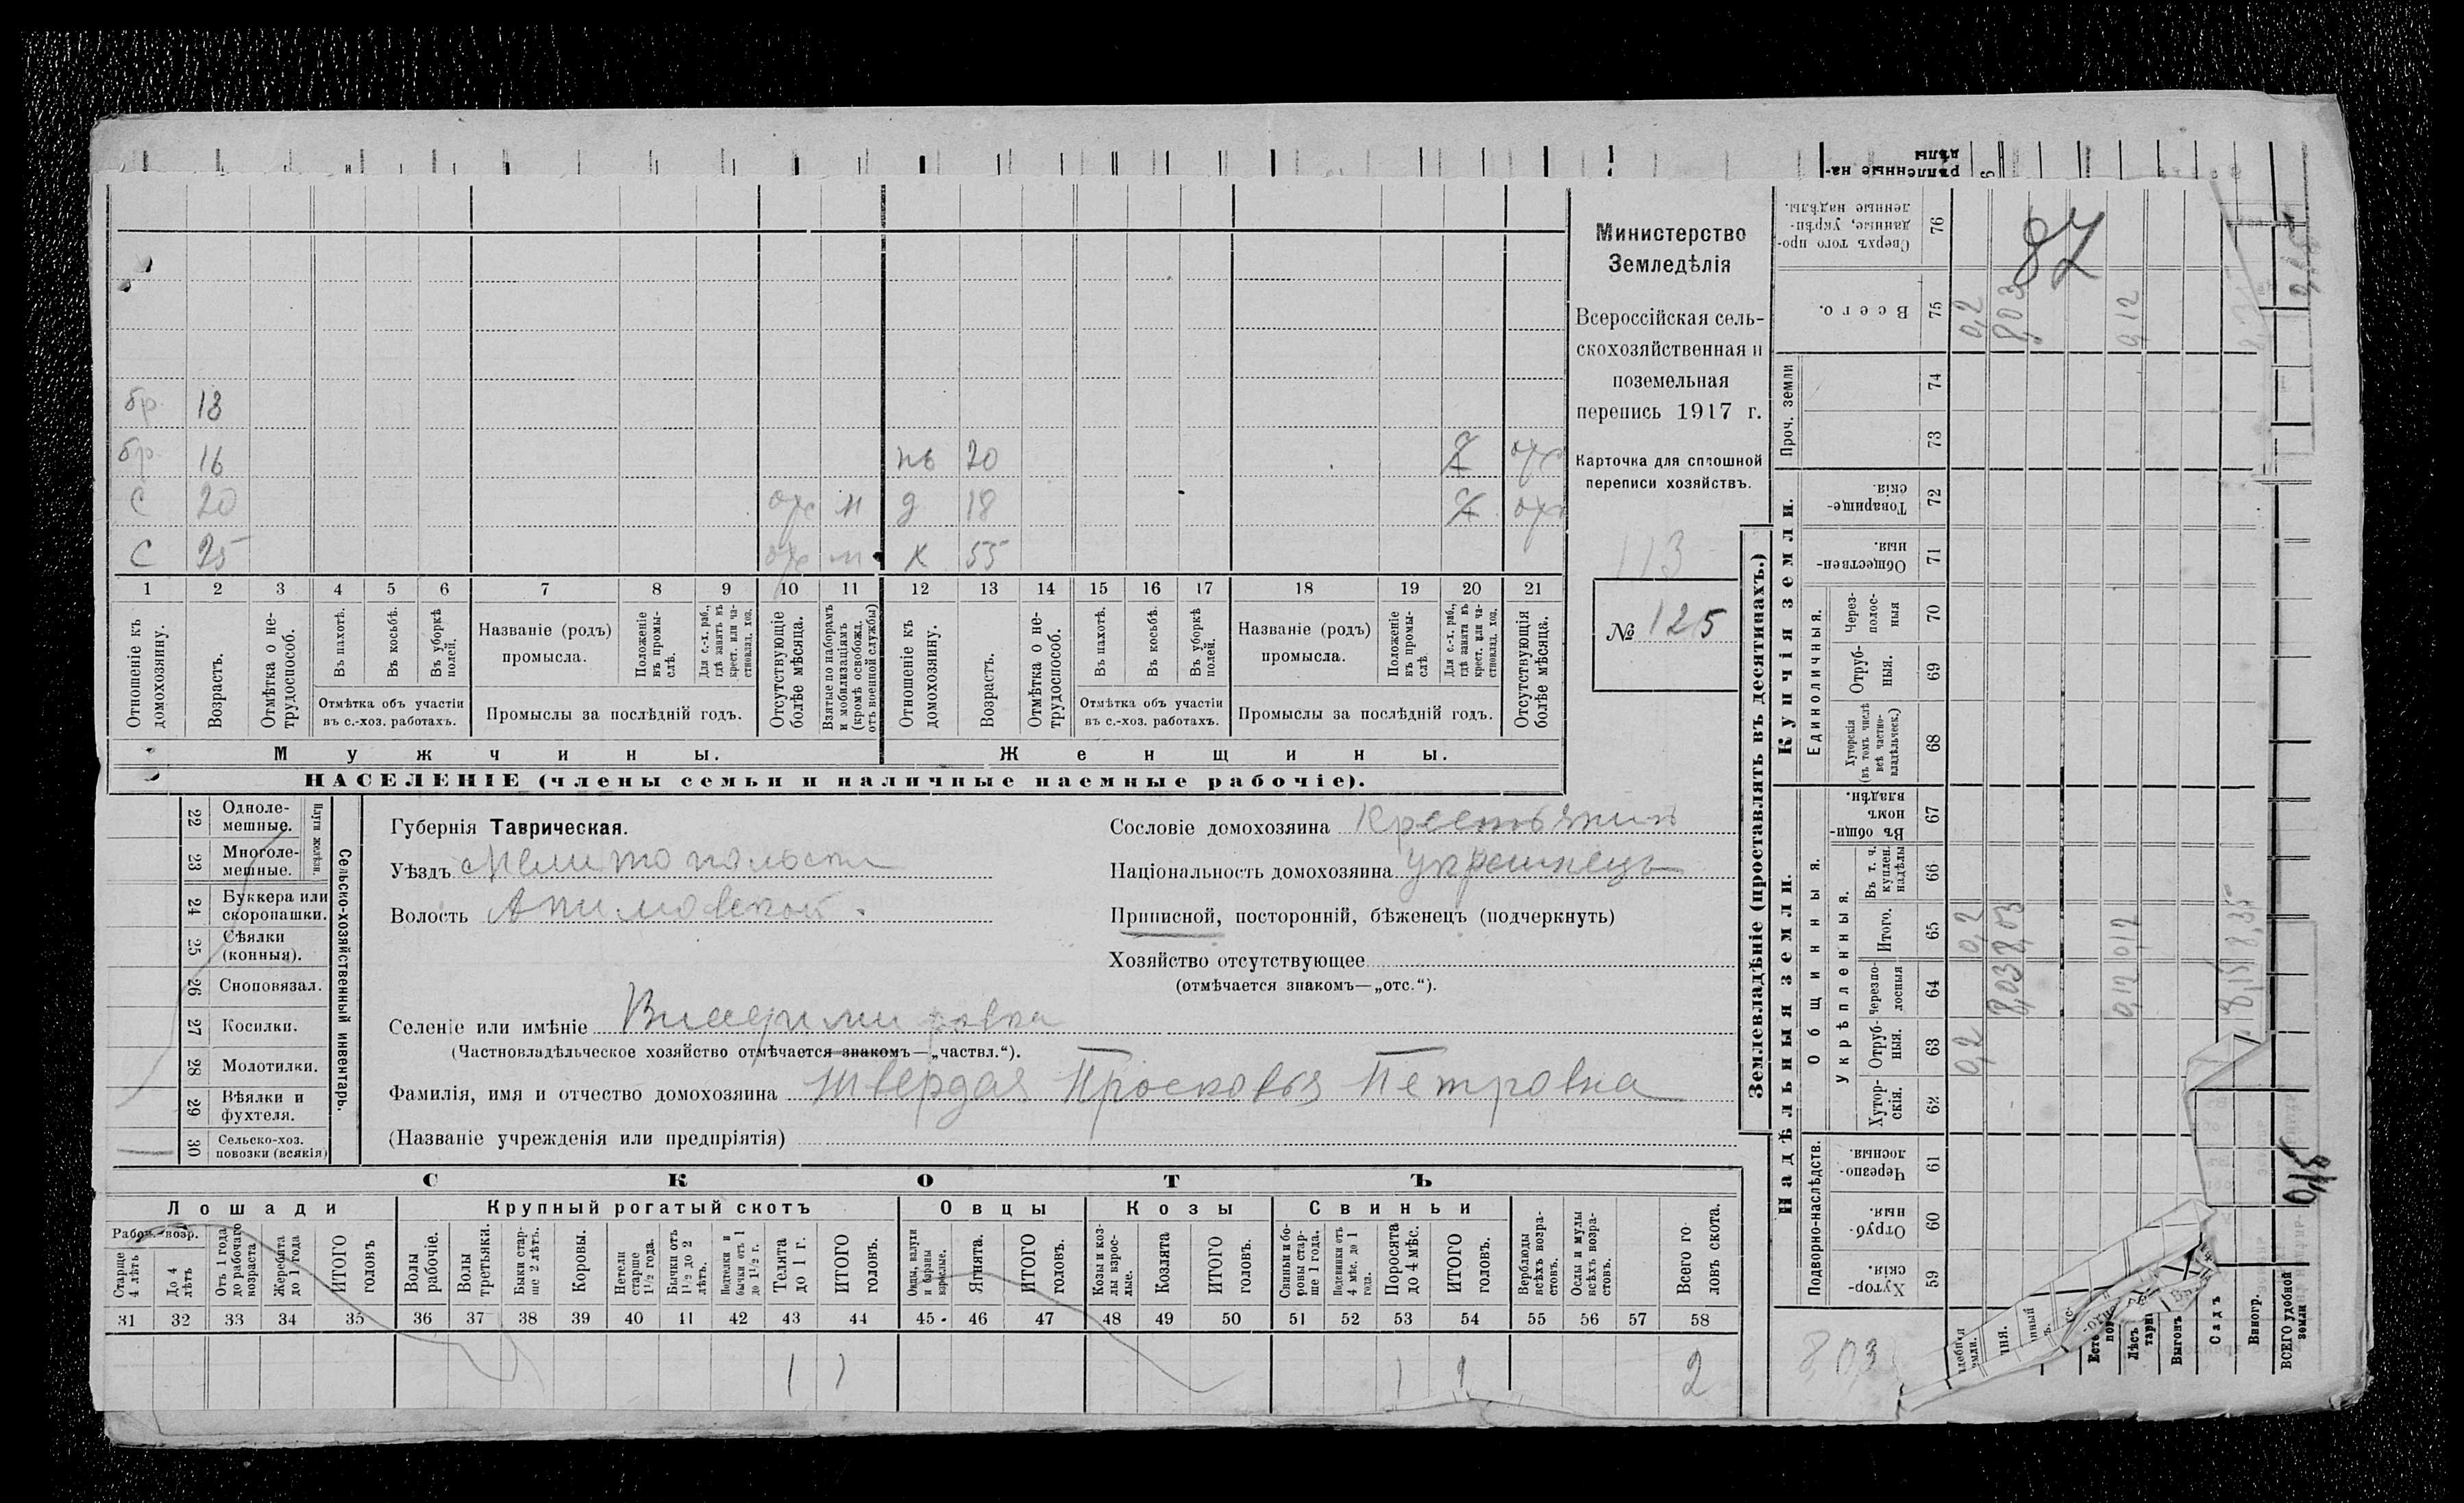 рѣпленные на-
дѣлы
Министерство
Земледѣлія
Всероссійская сель-
скохозяйственная и
поземельная
перепись 1917 г.
Карточка для сплошной
переписи хозяйствъ.
113
№ 125
бр. 18
бр. 16 20
С 20 отс м д 18 отс
С 25 отс м ж 55
1 2 3 4 5 6 7 8 9 10 11 12 13 14 15 16 17 18 19 20 21
Отношеніе къ домохозяину.
Возрастъ.
Отмѣтка о не-трудоспособ.
Въ пахотѣ.
Въ косьбѣ.
Въ уборкѣ полей.
Отмѣтка объ участіи
въ с.-хоз. работахъ.
Названіе (родъ)
промысла.
Положеніе въ промы-слѣ.
Для с.-х. раб., гдѣ занятъ въ крест. или ча-стновлад. хоз.
Промыслы за послѣдній годъ.
Отсутствующіе болѣе мѣсяца.
Взятые по наборамъ и мобилизаціямъ (кромѣ освобожд. отъ военной службы)
Отношеніе къ домохозяину.
Возрастъ.
Отмѣтка о не-трудоспособ.
Въ пахотѣ.
Въ косьбѣ.
Въ уборкѣ полей.
Отмѣтка объ участіи
въ с.-хоз. работахъ.
Названіе (родъ)
промысла.
Положеніе въ промы-слѣ
Для с.-х. раб., гдѣ занята въ крест. или ча-стновлад. хоз.
Промыслы за послѣдній годъ.
Отсутствующія болѣе мѣсяца.
Мужчины.
Женщины.
НАСЕЛЕНІЕ (члены семьи и наличные наемные рабочіе).
22 Одноле-
мешные.
23 Многоле-
мешные.
Плуги желѣзн.
24 Буккера или
скоропашки.
25 Сѣялки
(конныя).
26 Сноповязал.
27 Косилки.
28 Молотилки.
29 Вѣялки и
фухтеля.
30 Сельско-хоз.
повозки (всякія)
Сельско-хозяйственный инвентарь.
Губернія Таврическая.
Уѣздъ Мелитопольскій
Волость Акимовской.
Селеніе или имѣніе
(Частновладѣльческое хозяйство отмѣчается знакомъ—„частвл.“).
Фамилія, имя и отчество домохозяина Твердая Просковья Петровна
(Названіе учрежденія или предпріятія)
Сословіе домохозяина Крестьянинъ
Національность домохозяина украинецъ
Приписной, посторонній, бѣженецъ (подчеркнуть)
Хозяйство отсутствующее
(отмѣчается знакомъ—„отс.“).
СКОТЪ
Лошади
Крупный рогатый скотъ
Овцы
Козы
Свиньи
Рабоч. возр.
Старше 4 лѣтъ
До 4 лѣтъ
Отъ 1 года до рабочаго возраста
Жеребята до 1 года
ИТОГО головъ
Волы рабочіе.
Волы третьяки.
Быки стар-ше 2 лѣтъ.
Коровы.
Нетели старше 1 1/2 года.
Бычки отъ 1 1/2 до 2 лѣтъ.
Подтелки и бычки отъ 1 до 1 1/2 г.
Телята до 1 г.
ИТОГО головъ.
Овцы, валухи и бараны взрослые.
Ягнята.
ИТОГО головъ.
Козы и коз-лы взрос-лые.
Козлята
ИТОГО головъ.
Свиньи и бо-ровы стар-ше 1 года.
Подсвинки отъ 4 мѣс. до 1 года.
Поросята до 4 мѣс.
ИТОГО головъ.
Верблюды всѣхъ возра-стовъ.
Ослы и мулы всѣхъ возра-стовъ.
Всего го-ловъ скота.
31 32 33 34 35 36 37 38 39 40 41 42 43 44 45 46 47 48 49 50 51 52 53 54 55 56 57 58
1 1 1 1 2
Землевладѣніе (проставлять въ десятинахъ.)
Надѣльныя земли.
Купчія земли.
Проч. земли
Подворно-наслѣдств.
Общинныя.
Укрѣпленныя.
Единоличныя.
Хутор-скія. 59
Отруб-ныя. 60
Черезпо-лосныя. 61
Хутор-скія. 62
Отруб-ныя. 63
Черезпо-лосныя 64
Итого. 65
Въ т. ч. куплен. надѣлы 66
Въ общин-номъ владѣн. 67
Хуторскія (въ томъ числѣ всѣ частно-владѣльческ.) 68
Отруб-ныя. 69
Через-полос-ныя 70
Обществен-ныя. 71
Товарище-скія. 72
73
74
Всего. 75
Сверхъ того про-данные, укрѣп-ленные надѣлы. 76
87
0,2 0,2 0,2
8,03 8,03 8,03
0,12 0,12 0,12
8,15 8,35
8,03
Лѣсъ
Выгонъ
Садъ
Виногр.
ВСЕГО удобной земли